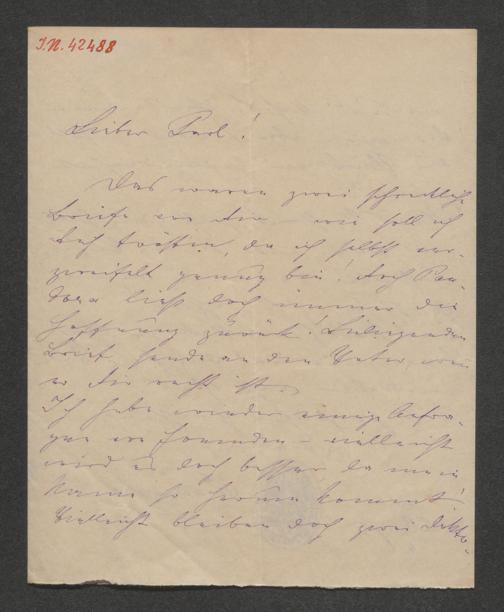 I.N. 42488
Lieber Carl!
Das waren zwei schreckliche
Briefe von Dir – wie soll ich
Dich trösten, da ich selbst ver-
zweifelt genug bin! Doch Pan-
dora ließ doch immer die
Hoffnung zurück! Beiliegenden
Brief sende an den Vater, wenn
er Dir recht ist.
Ich habe wieder einige Anfra-
gen von Freunden – vielleicht
wird es doch besser da mein
Name so herum kommt!
Vielleicht bleiben doch zwei